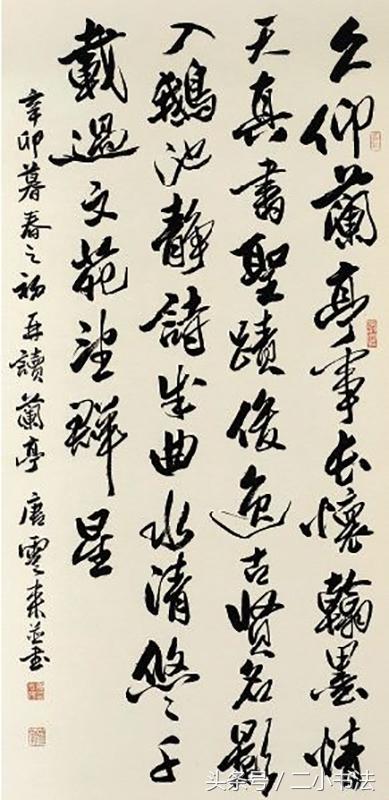 久仰蘭亭事長懷翰墨情
天真書聖蹟俊逸古賢名影
入鵝池靜詩成曲水清悠〻千
載過文苑望群星
辛卯暮春之初再讀蘭亭 唐雲来並書
头条号 / 二小书法